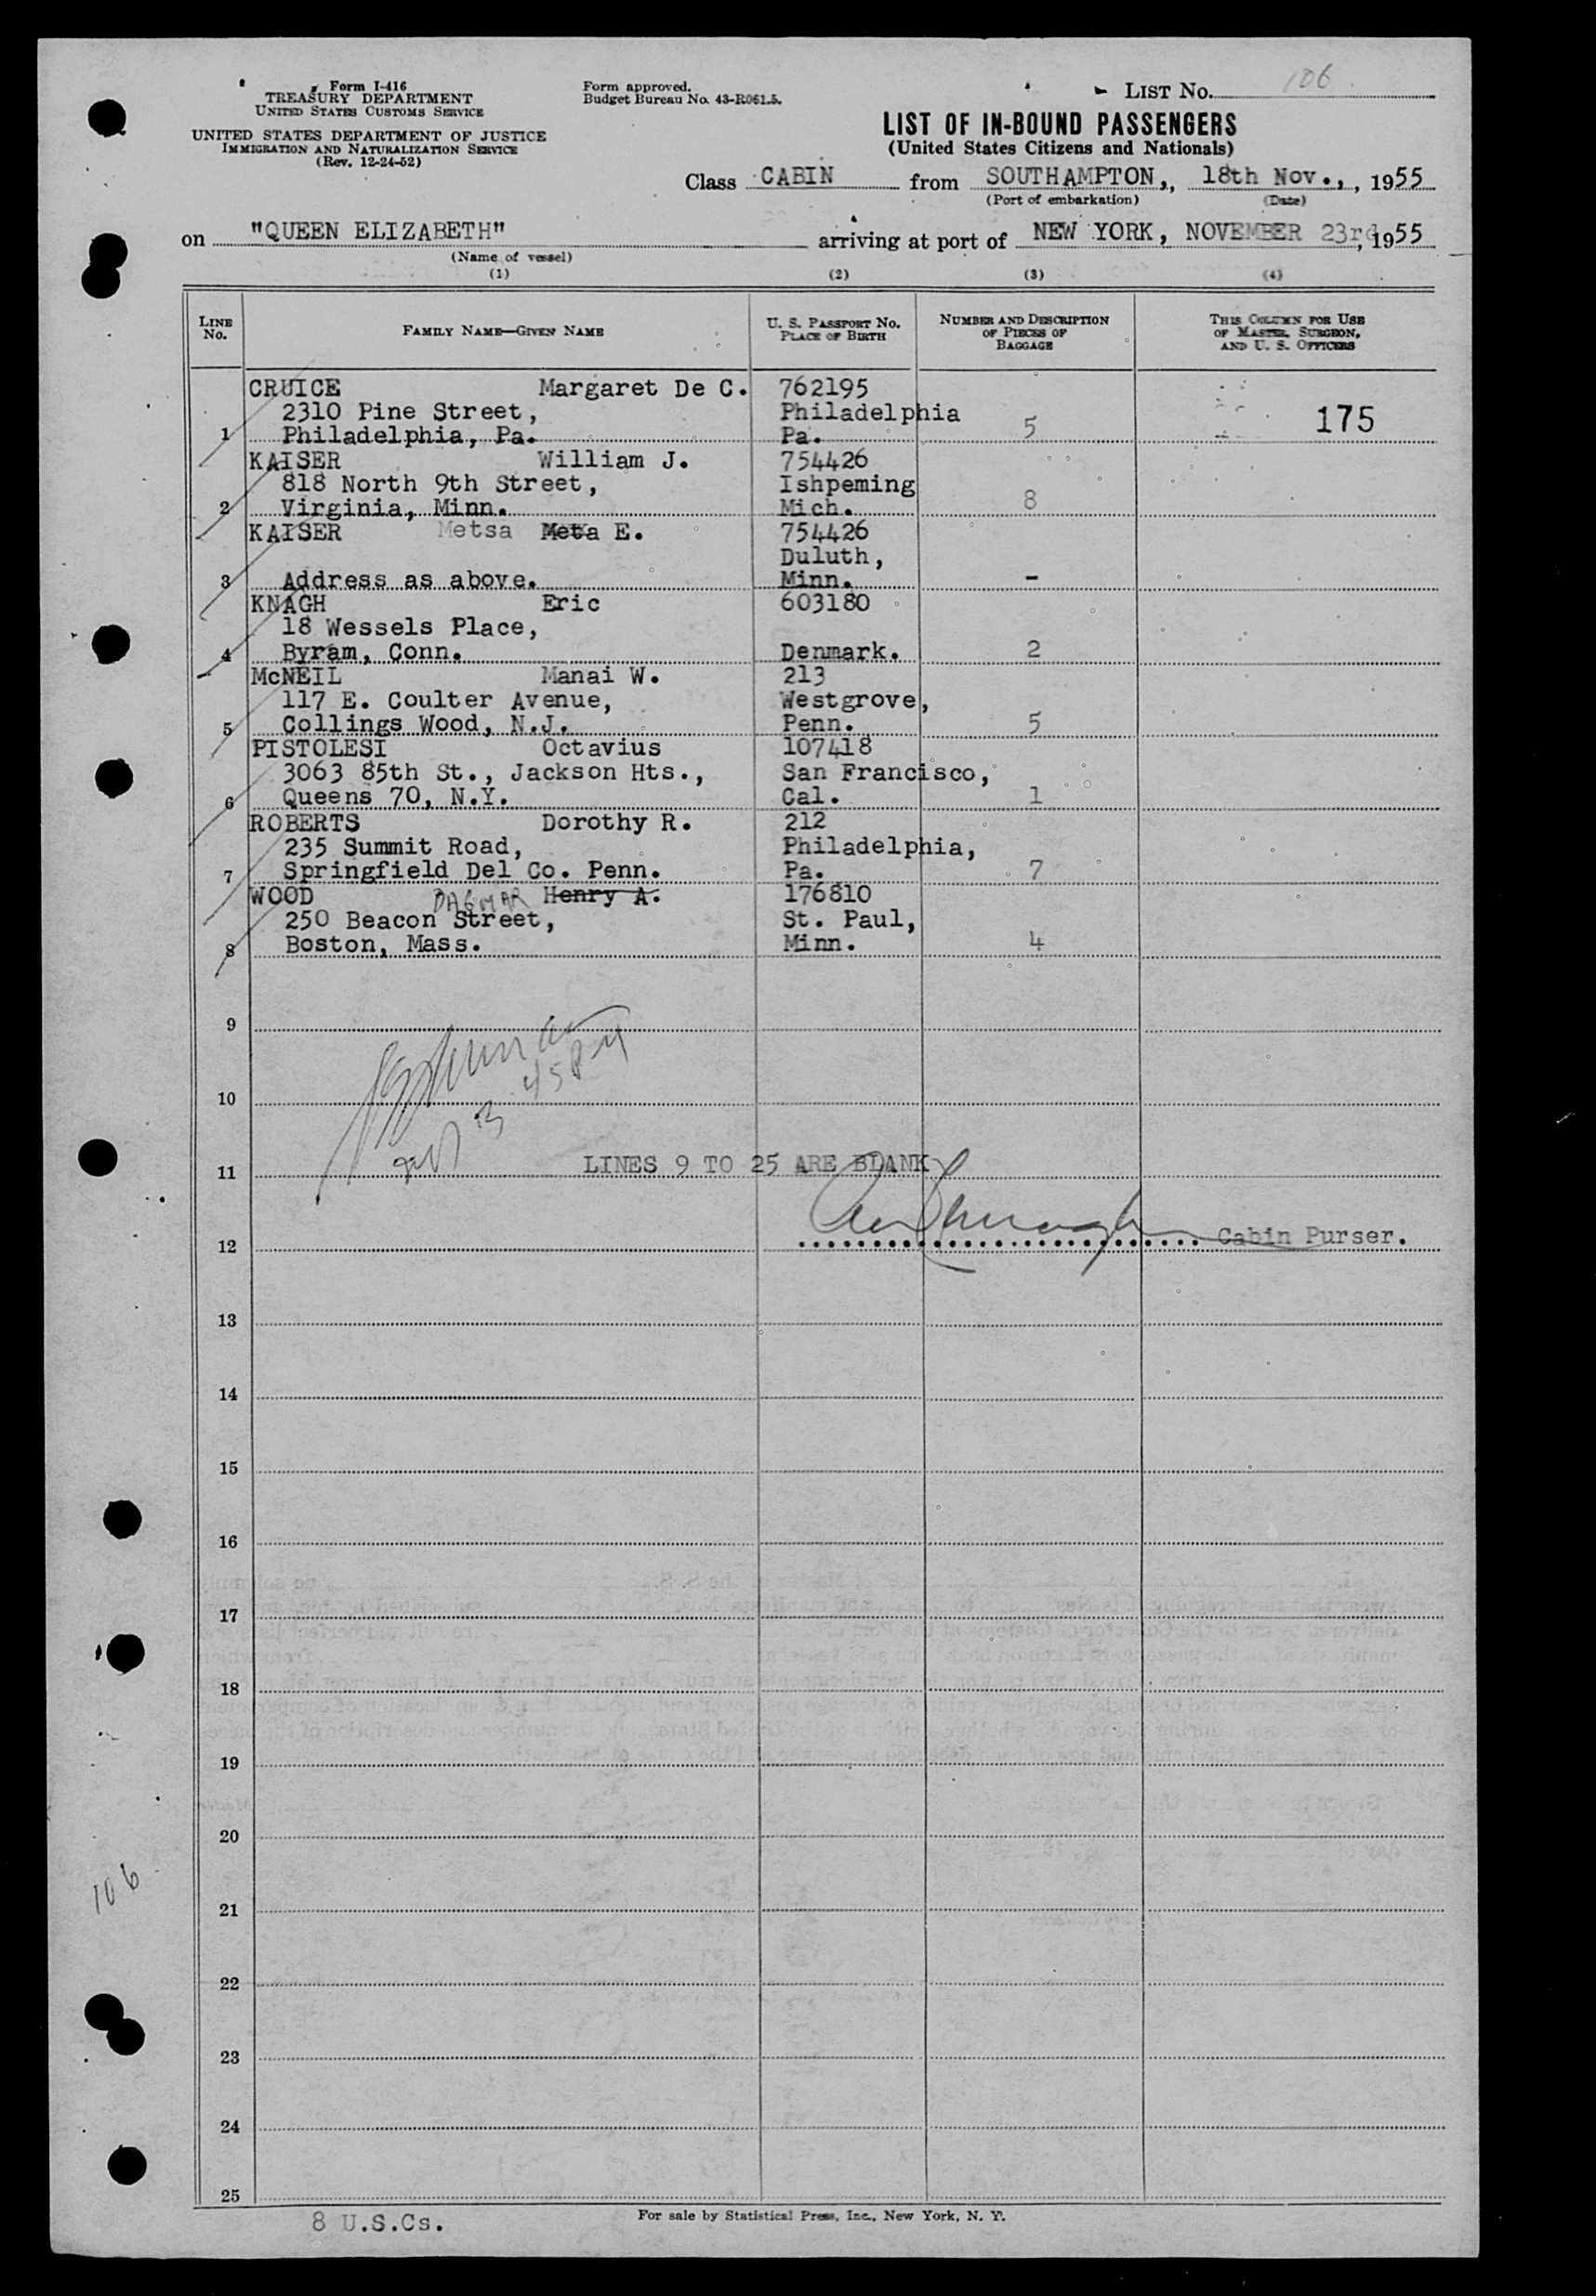 Form I-416
TREASURY DEPARTMENT
UNITED STATES CUSTOMS SERVICE
UNITED STATES DEPARTMENT OF JUSTICE
IMMIGRATION AND NATURALIZATION SERVICE
(Rev. 12-24-52)
Form approved.
Budget Bureau No. 43-R061.5.
LIST No. 106
LIST OF IN-BOUND PASSENGERS
(United States Citizens and Nationals)
Class CABIN from SOUTHAMPTON,, 18th Nov., , 1955
(Port of embarkation) (Date)
on "QUEEN ELIZABETH" arriving at port of NEW YORK, NOVEMBER 23rd, 1955
(Name of vessel)
(1) (2) (3) (4)
LINE No. FAMILY NAME—GIVEN NAME U. S. PASSPORT No. PLACE OF BIRTH NUMBER AND DESCRIPTION OF PIECES OF BAGGAGE THIS COLUMN FOR USE OF MASTER, SURGEON, AND U. S. OFFICERS
CRUICE Margaret De C. 762195
2310 Pine Street, Philadelphia
1 Philadelphia, Pa. Pa. 5 175
KAISER William J. 754426
818 North 9th Street, Ishpeming
2 Virginia, Minn. Mich. 8
KAISER Metsa Meta E. 754426
Duluth,
3 Address as above. Minn. -
KNAGH Eric 603180
18 Wessels Place,
4 Byram, Conn. Denmark. 2
McNEIL Manai W. 213
117 E. Coulter Avenue, Westgrove,
5 Collings Wood, N.J. Penn. 5
PISTOLESI Octavius 107418
3063 85th St., Jackson Hts., San Francisco,
6 Queens 70, N.Y. Cal. 1
ROBERTS Dorothy R. 212
235 Summit Road, Philadelphia,
7 Springfield Del Co. Penn. Pa. 7
WOOD DAGMAR Henry A. 176810
250 Beacon Street, St. Paul,
8 Boston, Mass. Minn. 4
9
10
11 LINES 9 TO 25 ARE BLANK
12 Cabin Purser.
13
14
15
16
17
18
19
20
106
21
22
23
24
25
8 U.S.Cs.
For sale by Statistical Press, Inc., New York, N. Y.